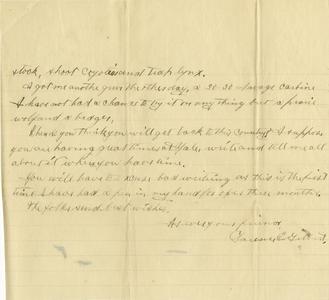 stock, shoot Coyotes and trap lynx.
I got me another gun the other day, a 30-30 Savage carbine
I have not had a chance to try it on any thing but a prairie
wolf and a badger,
do you think you will get back to this country I suppose
you are having great times at Yale, write and tell me all
about it when you have time.
You will have to excuse bad writing as this is the first
time I have had a pen in my hand for over three months.
The folks send best wishes.
As ever your friend
Clarence